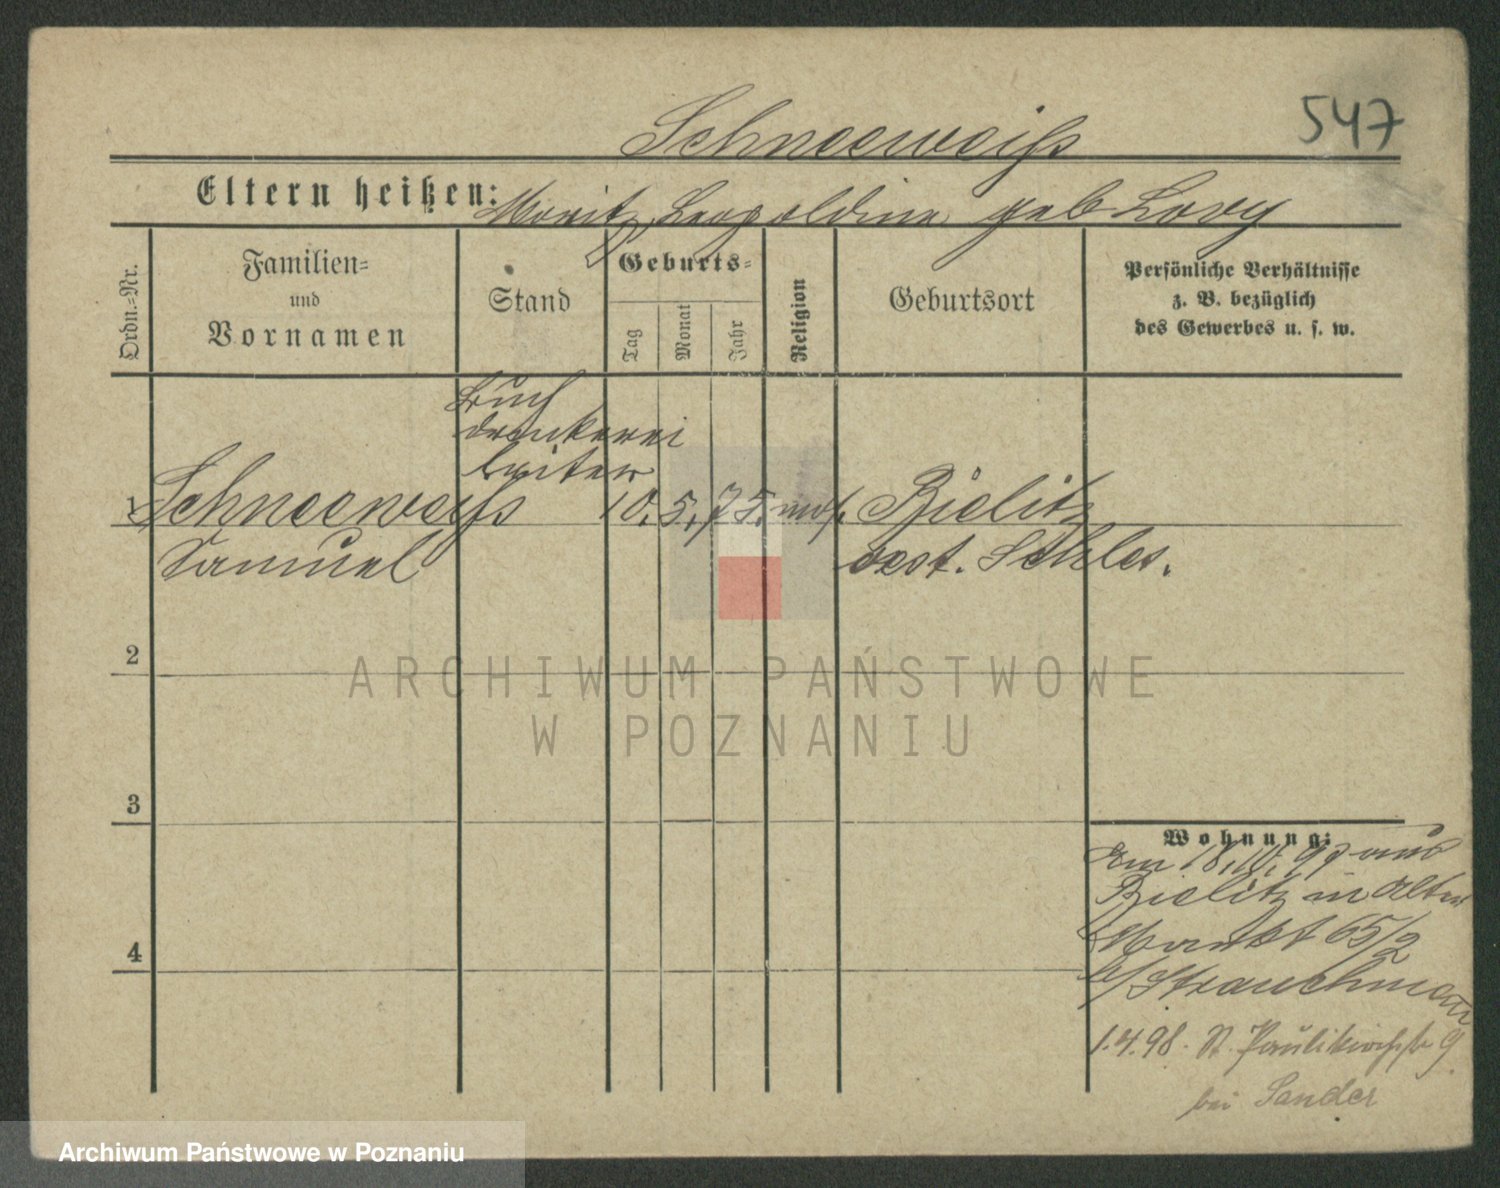 547
Schneeweiß
Eltern heißen: Moritz, Leopoldine geb Lövy
Ordn.=Nr.
Familien=
und
Vornamen
Stand
Geburts=
Tag
Monat
Jahr
Religion
Geburtsort
Persönliche Verhältnisse
z. B. bezüglich
des Gewerbes u. s. w.
Buch
druckerei
leiter
1 Schneeweiß 10. 5. 75. mos. Bielitz
Samuel oest. Schles.
2
3
4
Wohnung:
am 18.10.97 aus
Bielitz in Alter
Markt 65/2
b/ Strauchmann
1.4.98. St. Paulikirchstr 9
bei Sander
ARCHIWUM PAŃSTWOWE
W POZNANIU
Archiwum Państwowe w Poznaniu